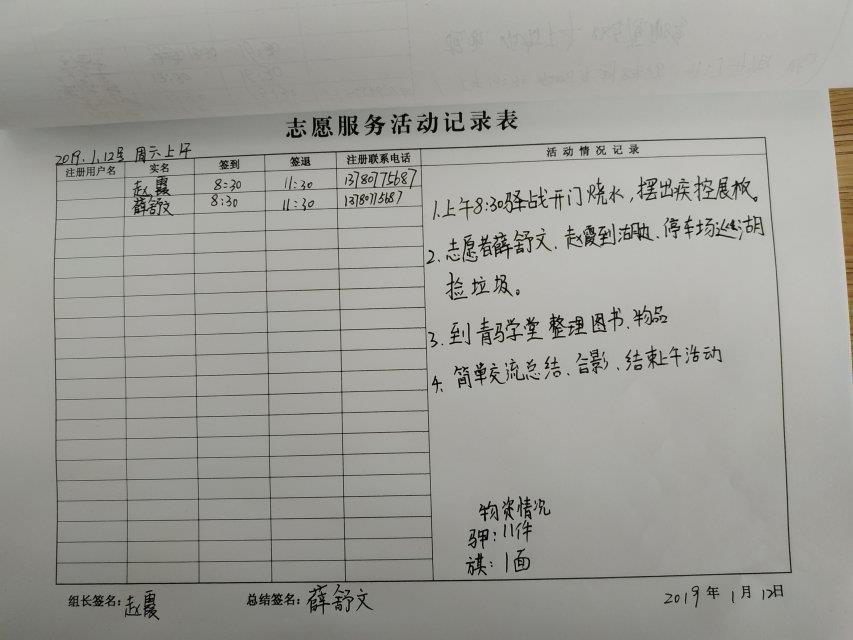 志愿服务活动记录表
2019.1.12号 周六上午
注册用户名 实名 签到 签退 注册联系电话 活动情况记录
赵霞 8:30 11:30 13780775687
薛舒文 8:30 11:30 13780775687
1.上午8:30驿战开门烧水,摆出疾控展板。
2.志愿者薛舒文、赵霞到湖边、停车场巡湖
捡垃圾。
3.到青马学堂整理图书、物品
4.简单交流总结、合影、结束上午活动
物资情况
马甲:11件
旗:1面
组长签名:赵霞 总结签名:薛舒文 2019年1月12日